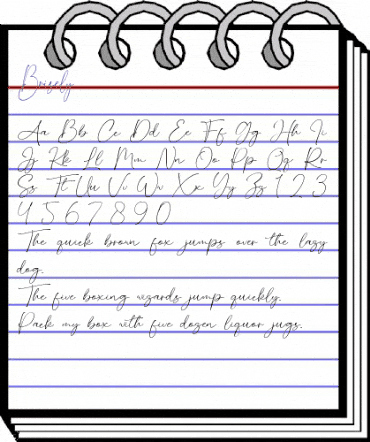 Brisely
Aa Bb Cc Dd Ee Ff Gg Hh Ii
Jj Kk Ll Mm Nn Oo Pp Qq Rr
Ss Tt Uu Vv Ww Xx Yy Zz 1 2 3
4 5 6 7 8 9 0
The quick brown fox jumps over the lazy
dog.
The five boxing wizards jump quickly.
Pack my box with five dozen liquor jugs.